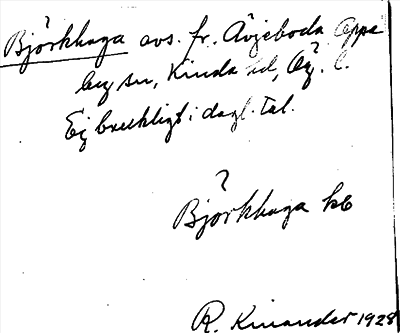 Björkhaga avs. fr. Åvjeboda Oppe
by sn, Kinda hd, Ög. l.
Ej brukligt i dagl. tal.
?
Björkhaga
R. Kinander 1928